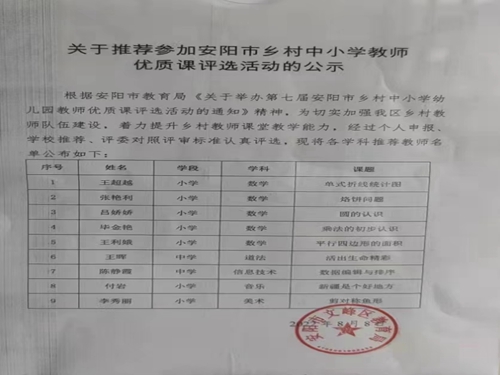 关于推荐参加安阳市乡村中小学教师
优质课评选活动的公示
根据安阳市教育局《关于举办第七届安阳市乡村中小学幼
儿园教师优质课评选活动的通知》精神，为切实加强我区乡村教
师队伍建设，着力提升乡村教师课堂教学能力，经过个人申报、
学校推荐、评委对照评审标准认真评选，现将各学科推荐教师名
单公布如下：
序号 姓名 学段 学科 课题
1 王超越 小学 数学 单式折线统计图
2 张艳利 小学 数学 烙饼问题
3 吕娇娇 小学 数学 圆的认识
4 毕金艳 小学 数学 乘法的初步认识
5 王利娥 小学 数学 平行四边形的面积
6 王晖 中学 道法 活出生命精彩
7 陈静霞 中学 信息技术 数据编辑与排序
8 付岩 小学 音乐 新疆是个好地方
9 李秀丽 小学 美术 剪对称鱼形
年8月8
安阳市文峰区教育局